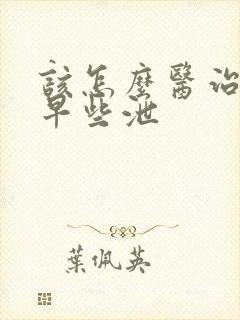 該怎麼醫治
早些泄
葉佩英